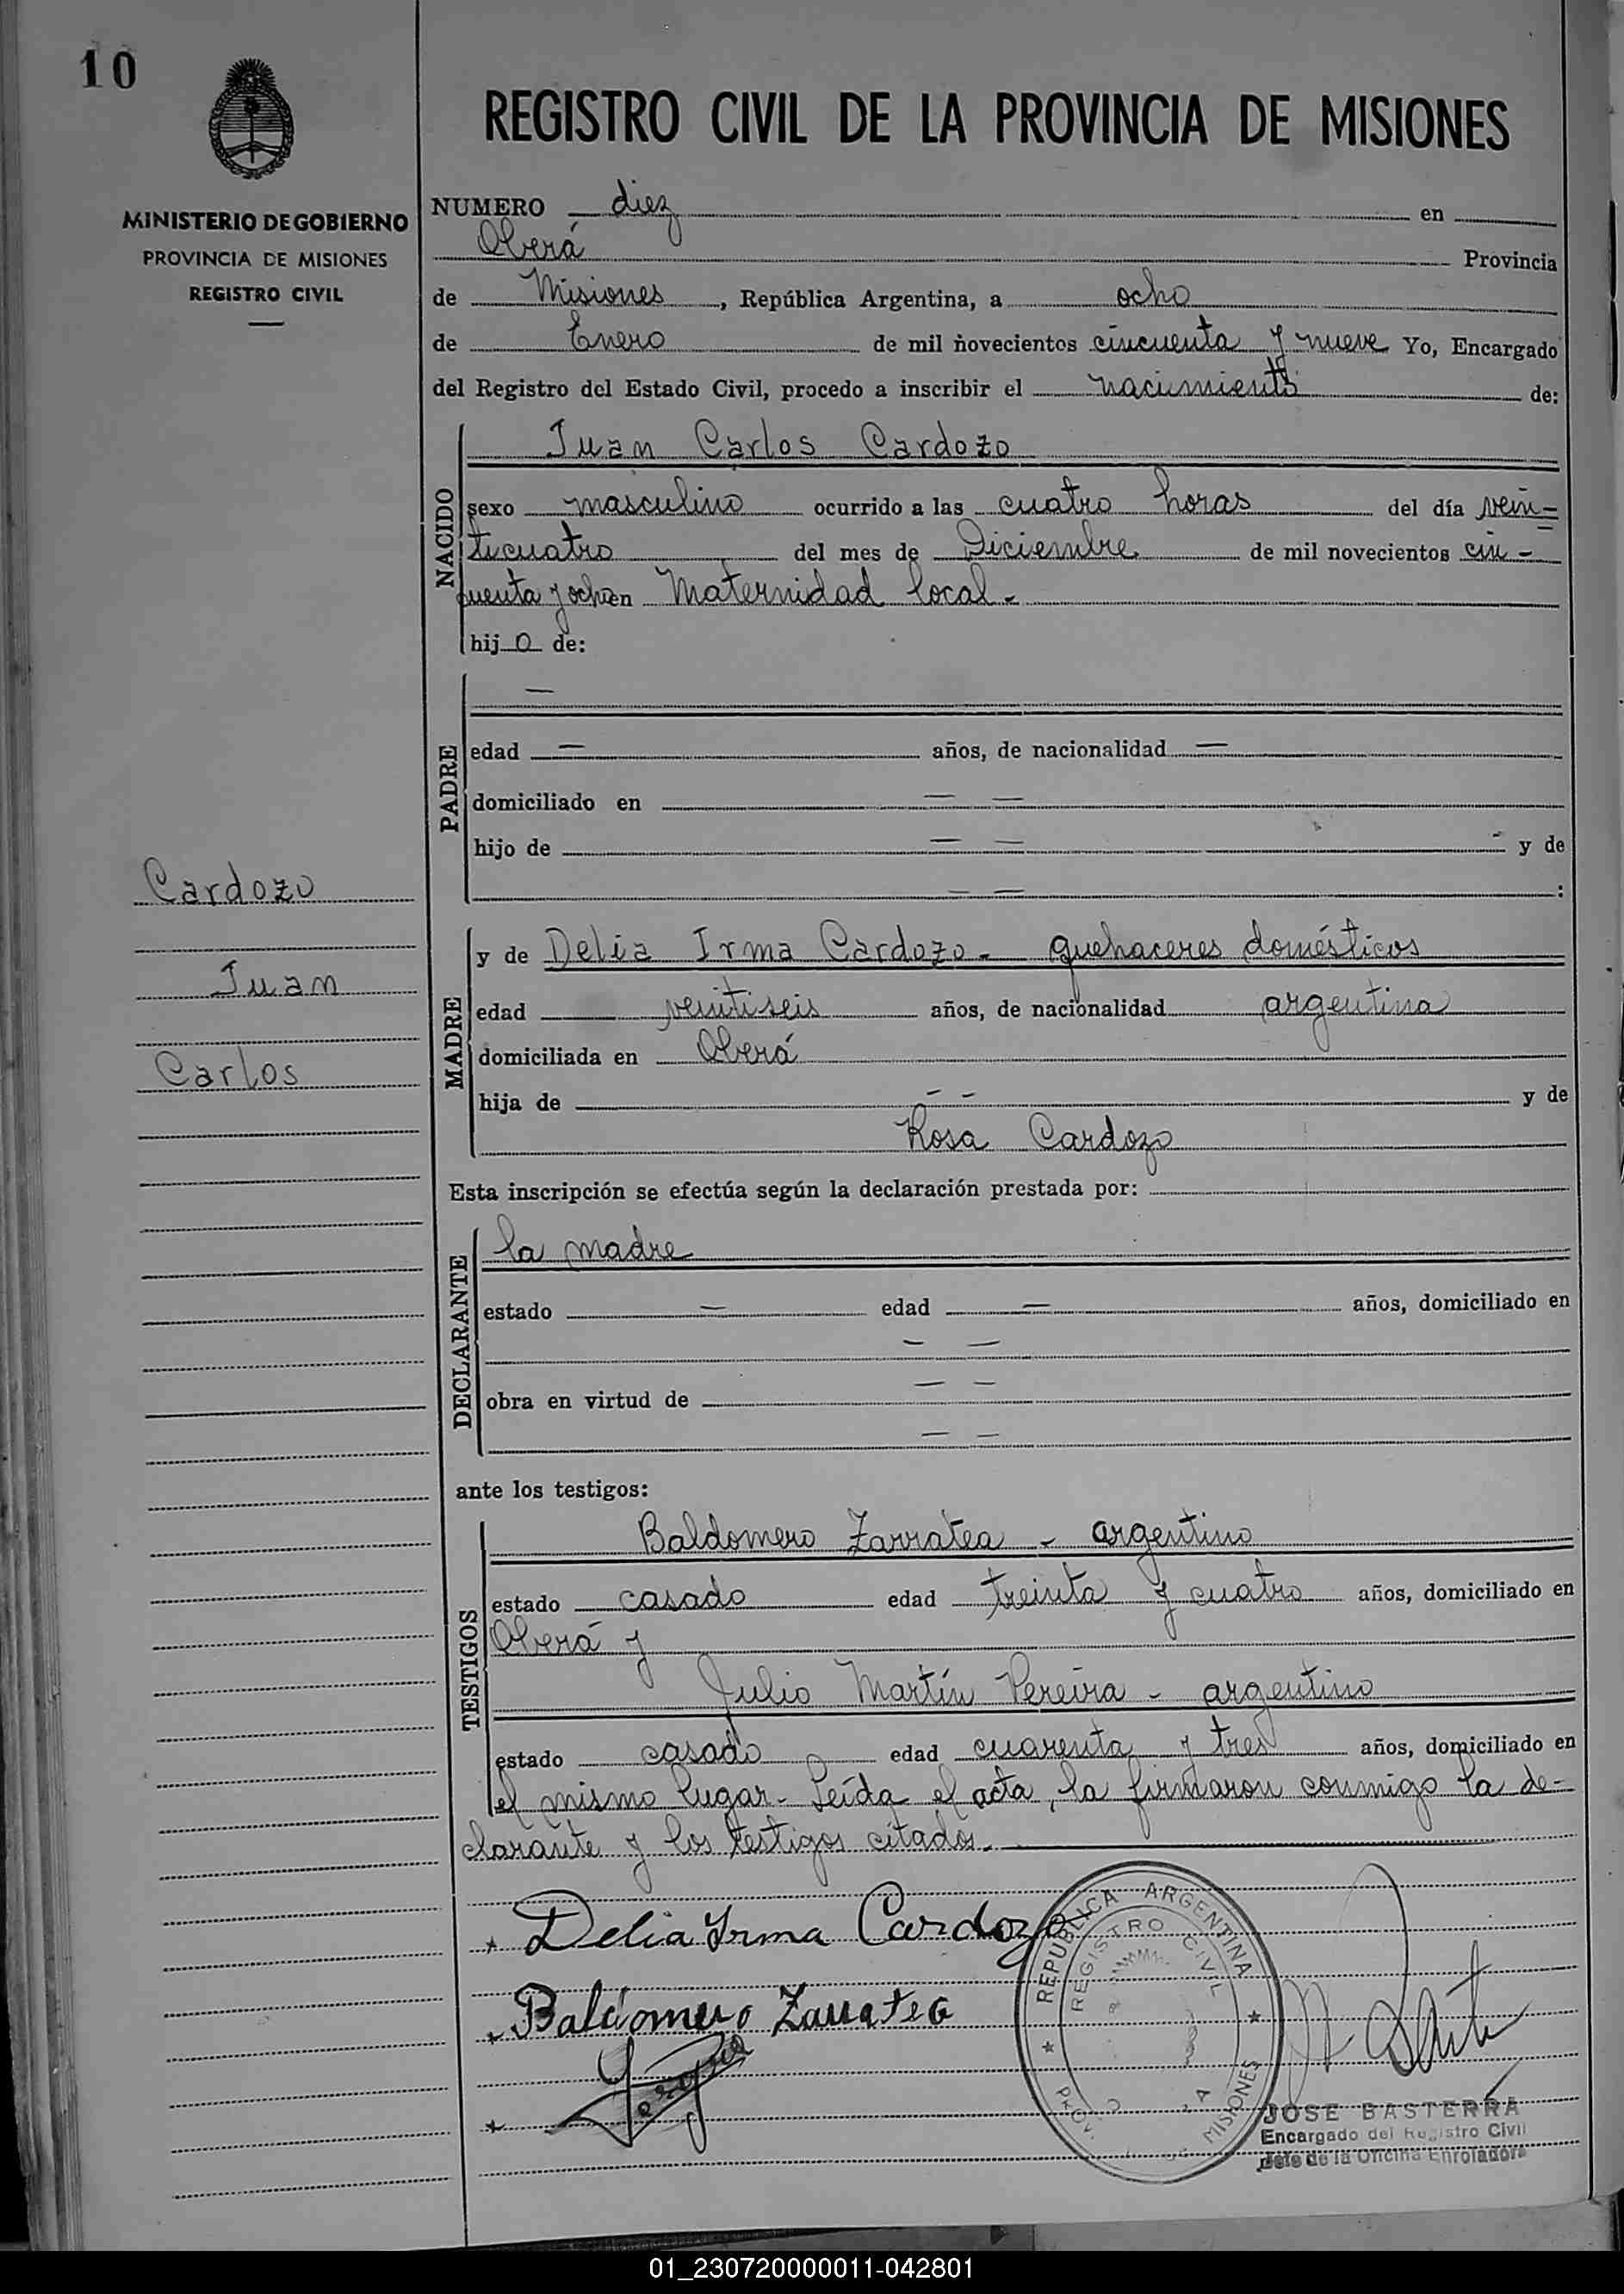 10
REGISTRO CIVIL DE LA PROVINCIA DE MISIONES
MINISTERIO DE GOBIERNO
PROVINCIA DE MISIONES
REGISTRO CIVIL
NUMERO diez en
Oberá Provincia
de Misiones, República Argentina, a ocho
de Enero de mil novecientos cincuenta y nueve Yo, Encargado
del Registro del Estado Civil, procedo a inscribir el nacimiento de:
NACIDO
Juan Carlos Cardozo
sexo masculino ocurrido a las cuatro horas del día vein=
ticuatro del mes de Diciembre de mil novecientos cin-
cuenta y ocho en Maternidad local.-
hijo de:
PADRE
—
edad — años, de nacionalidad —
domiciliado en — —
hijo de — — - y de
— — :
Cardozo
Juan
Carlos
MADRE
y de Delia Irma Cardozo.- quehaceres domésticos
edad veintiseis años, de nacionalidad argentina
domiciliada en Oberá
hija de - - y de
Rosa Cardozo
Esta inscripción se efectúa según la declaración prestada por:
DECLARANTE
la madre
estado — edad — años, domiciliado en
— —
obra en virtud de — —
— —
ante los testigos:
TESTIGOS
Baldomero Zarratea - argentino
estado casado edad treinta y cuatro años, domiciliado en
Oberá y
Julio Martín Pereira - argentino
estado casado edad cuarenta y tres años, domiciliado en
el mismo lugar.- Leída el acta, la firmaron conmigo la de-
clarante y los testigos citados.
Delia Irma Cardozo
Baldomero Zarratea
REPUBLICA ARGENTINA
REGISTRO CIVIL
MISIONES
JOSE BASTERRA
Encargado del Registro Civil
Jefe de la Oficina Enroladora
01_230720000011-042801